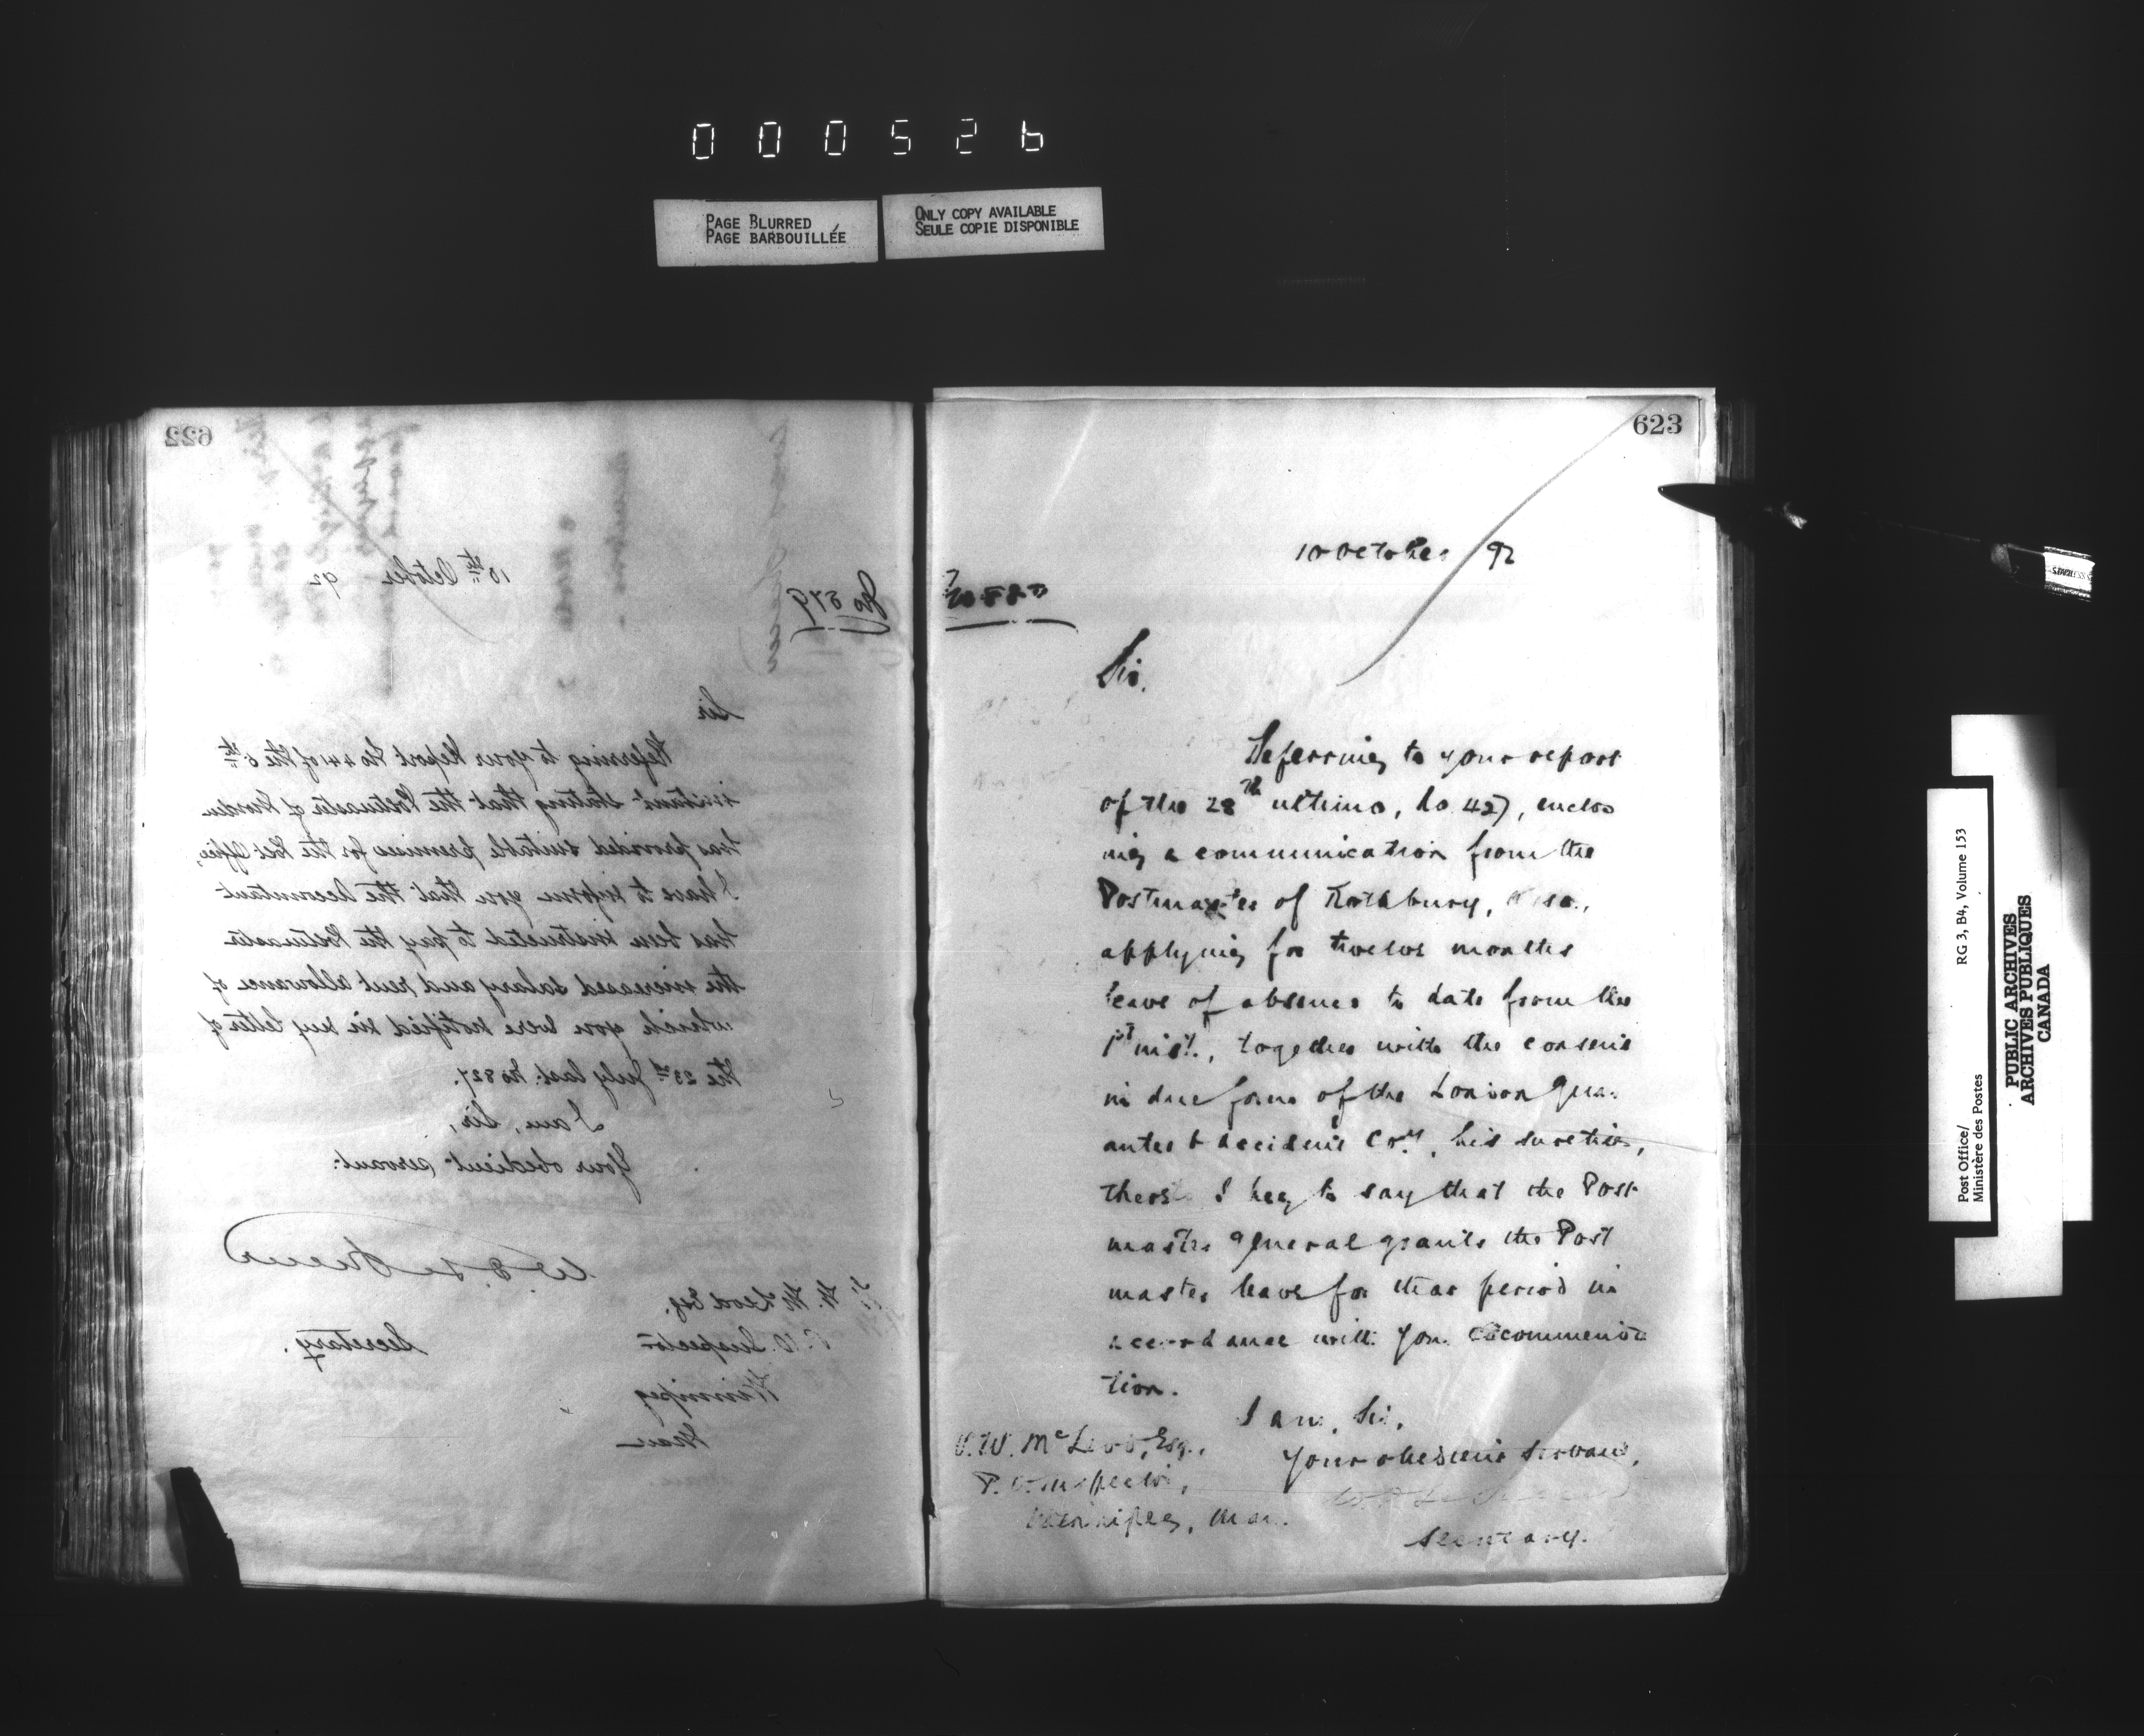 000526
PAGE BLURRED
PAGE BARBOUILLÉE
ONLY COPY AVAILABLE
SEULE COPIE DISPONIBLE
622
10th October 92
No 579
Sir
Referring to your Report No 441 of the 5th
instant stating that the Postmaster of Morden
has provided suitable premises for the Post Office,
I have to inform you that the Accountant
has been instructed to pay the Postmaster
the increased salary and rent allowance of
which you were notified in my letter of
the 23rd July last. No 327.
I am, Sir,
Your obedient servant
W. D. LeSueur
Secretary.
W. W. McLeod Esq.
P. O. Inspector
Winnipeg
Man
623
10 October 92
Sir,
Referring to your report
of the 28th ultimo, No 427, enclos
ing a communication from the
Postmaster of Rothbury,
applying for twelve months
leave of absence to date from the
1st inst., together with the consent
in due form of the London Guar
antee & Accident Coy., his sureties,
thereto I beg to say that the Post
master General grants the Post
master leave for that period in
accordance with your recommenda
tion.
I am, Sir,
Your obedient Servant,
W. D. LeSueur
Secretary.
W. W. McLeod, Esq.,
P. O. Inspector,
Winnipeg, Man.
Post Office/
Ministère des Postes
RG 3, B4, Volume 153
PUBLIC ARCHIVES
ARCHIVES PUBLIQUES
CANADA